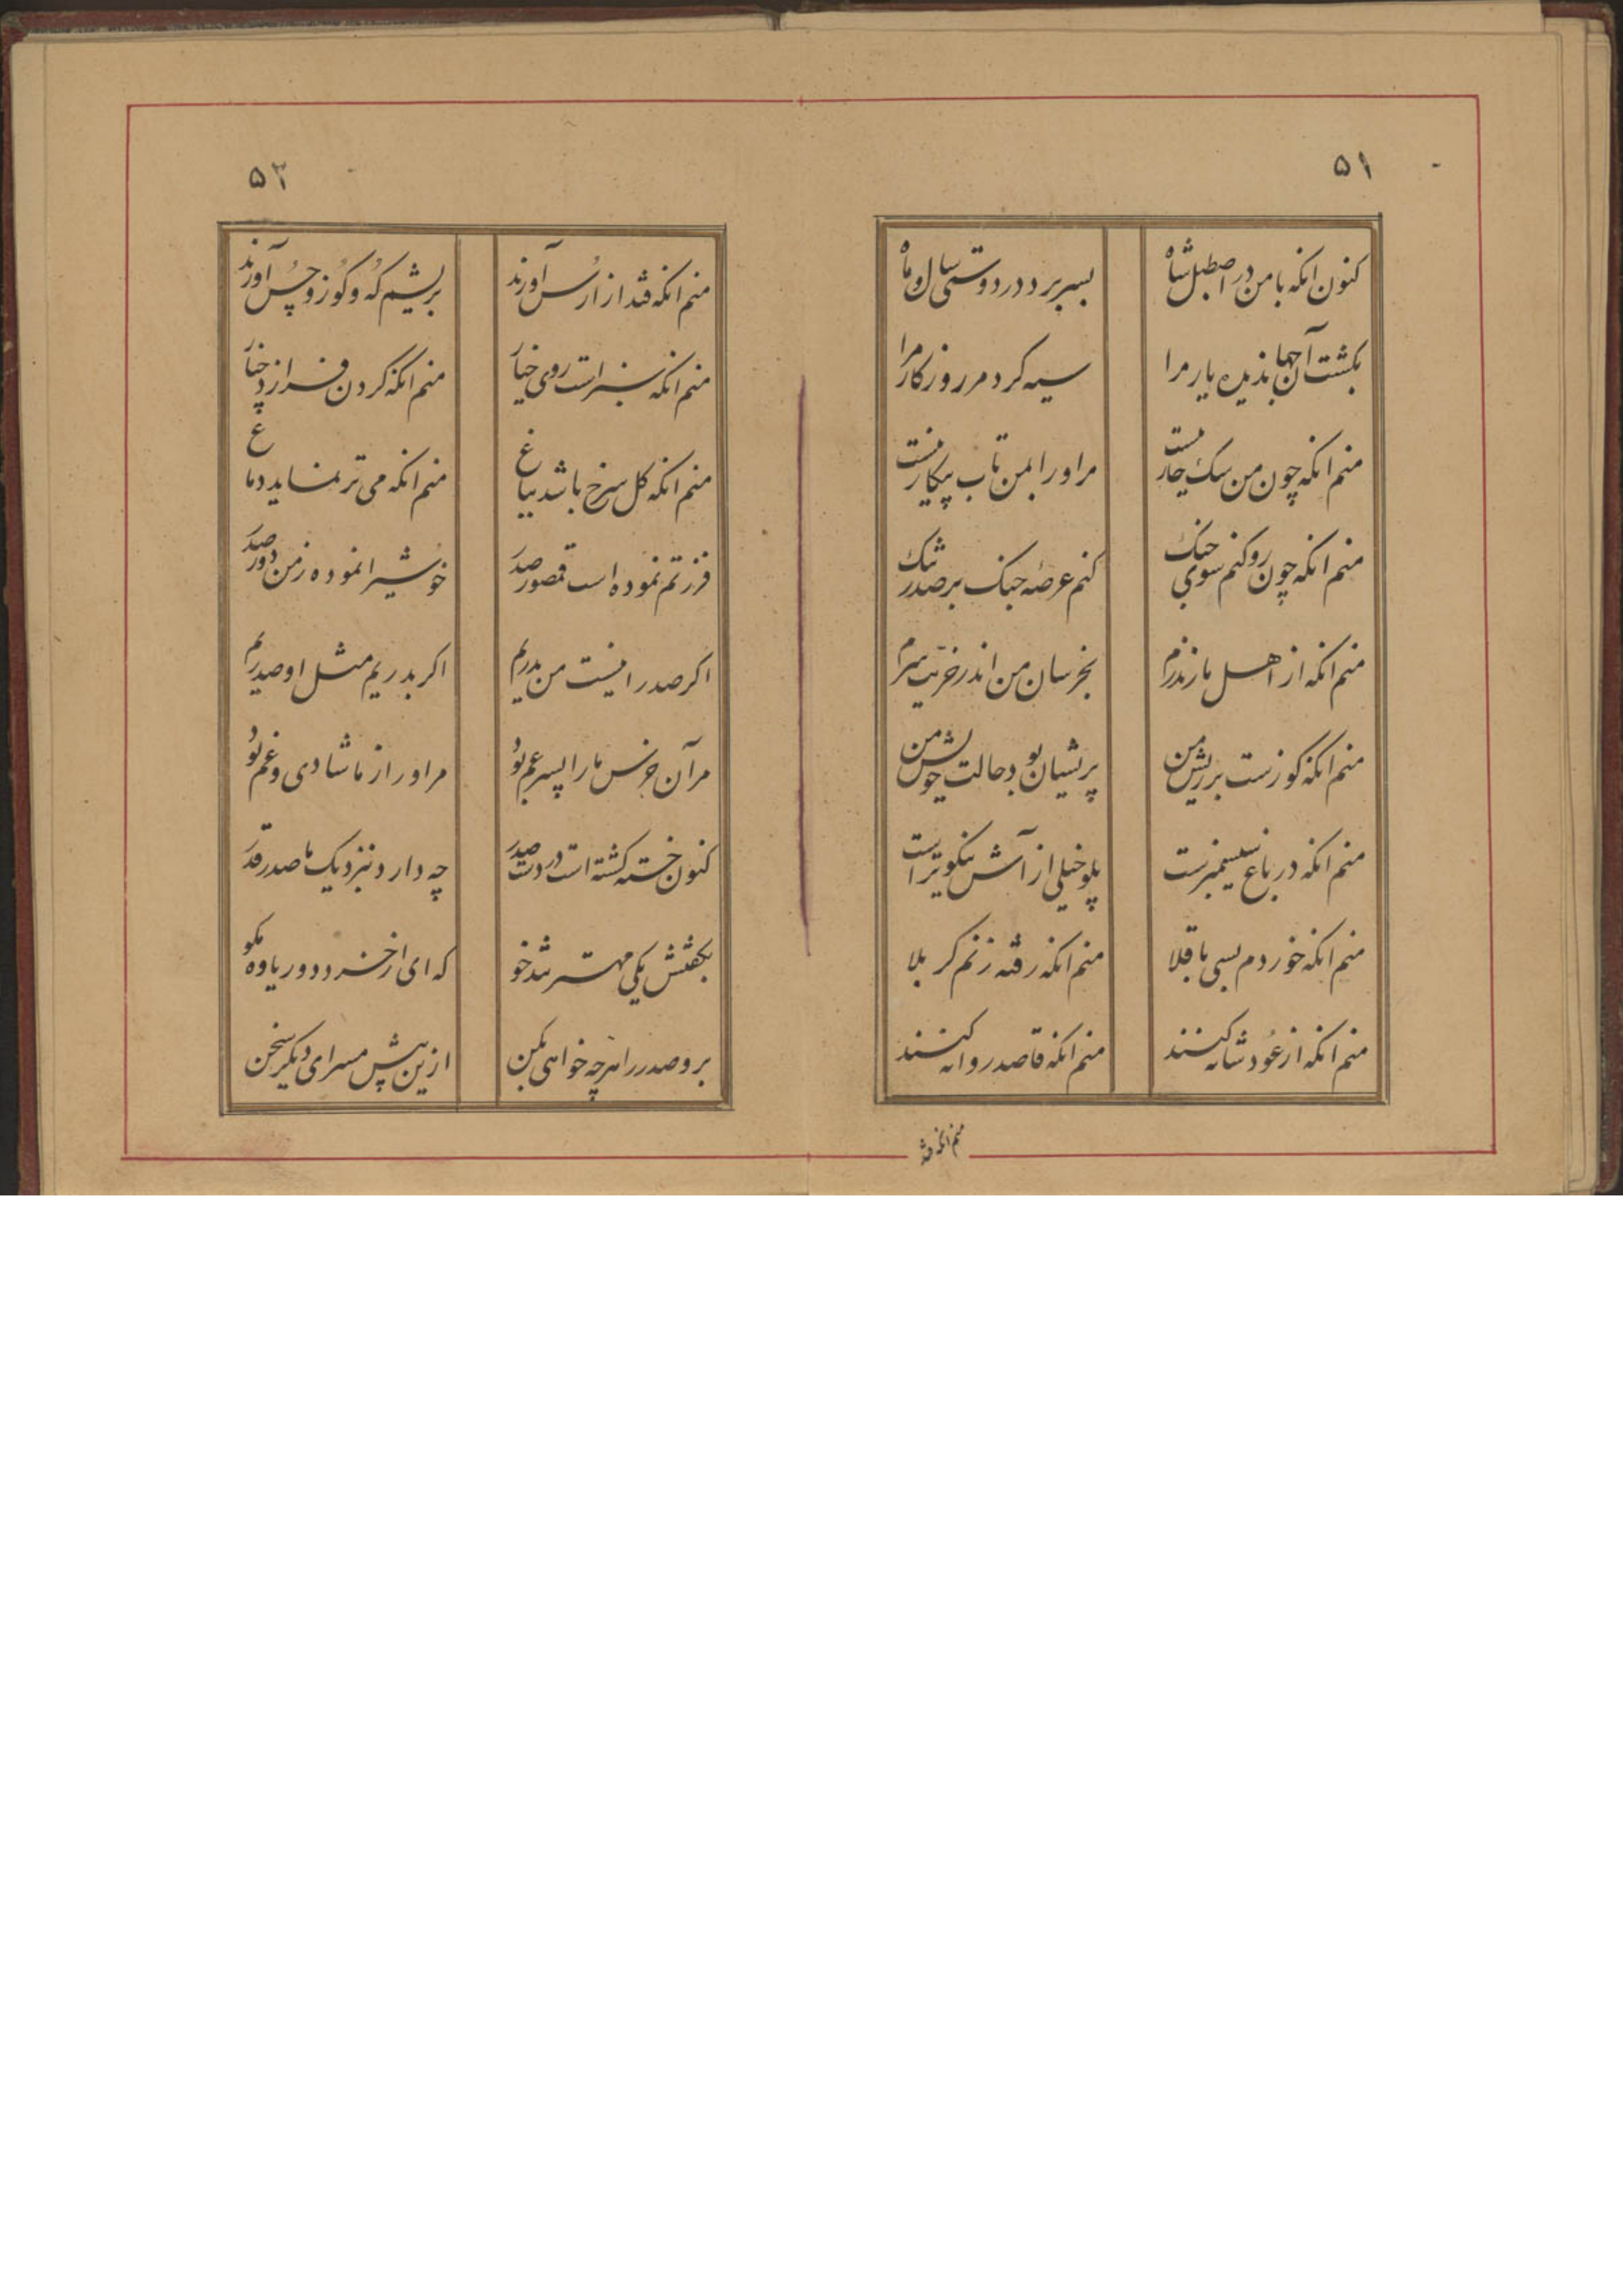 ۵۱
کنون انکه با من در اصطبل شاه
بسر برد در دوستی سال و ماه
بکشت آن جهان دیده یار مرا
سیه کرد مر روزکار مرا
منم انکه چون من سک جار نیست
مر اورا بمن تاب پیکار نیست
منم انکه چون رو کنم سوی جنک
کنم عرصهٔ جنک بر صدر تنک
منم انکه از اهل مازندرم
بخرسان من اندر خریت سرم
منم انکه کوزست بر ریش من
پریشان بود حالت خویش من
منم انکه در باغ سیسمبرست
پلو خیلی از آش نیکوتر است
منم انکه خوردم بسی باقلا
منم انکه رفته زنم کربلا
منم انکه از عود شانه کنند
منم انکه قاصد روانه کنند
منم انکه قند
۵۲
منم انکه قند از ارس آورند
بریشم که و کوز و چس آورند
منم انکه سبز است روی خیار
منم انکه کردن فرازد چنار
منم انکه کل سرخ باشد بباغ
منم انکه می تر نماید دماغ
فزرتم نموده است قمصور صدر
خوشیرا نموده ز من دور صدر
اکر صدر را نیست من بدریم
اکر بدریم مثل او صدریم
مر آن خرس ما را پسر عم بود
مر اورا ز ما شادی و غم بود
کنون خسته کشته است در دست صدر
چه دارد بنزدیک ما صدر قدر
بکفتش یکی مهتر تند خو
که ای از خرد دور یاوه مکو
برو صدر را هرچه خواهی بکن
ازین بیش مسرای دیکر سخن